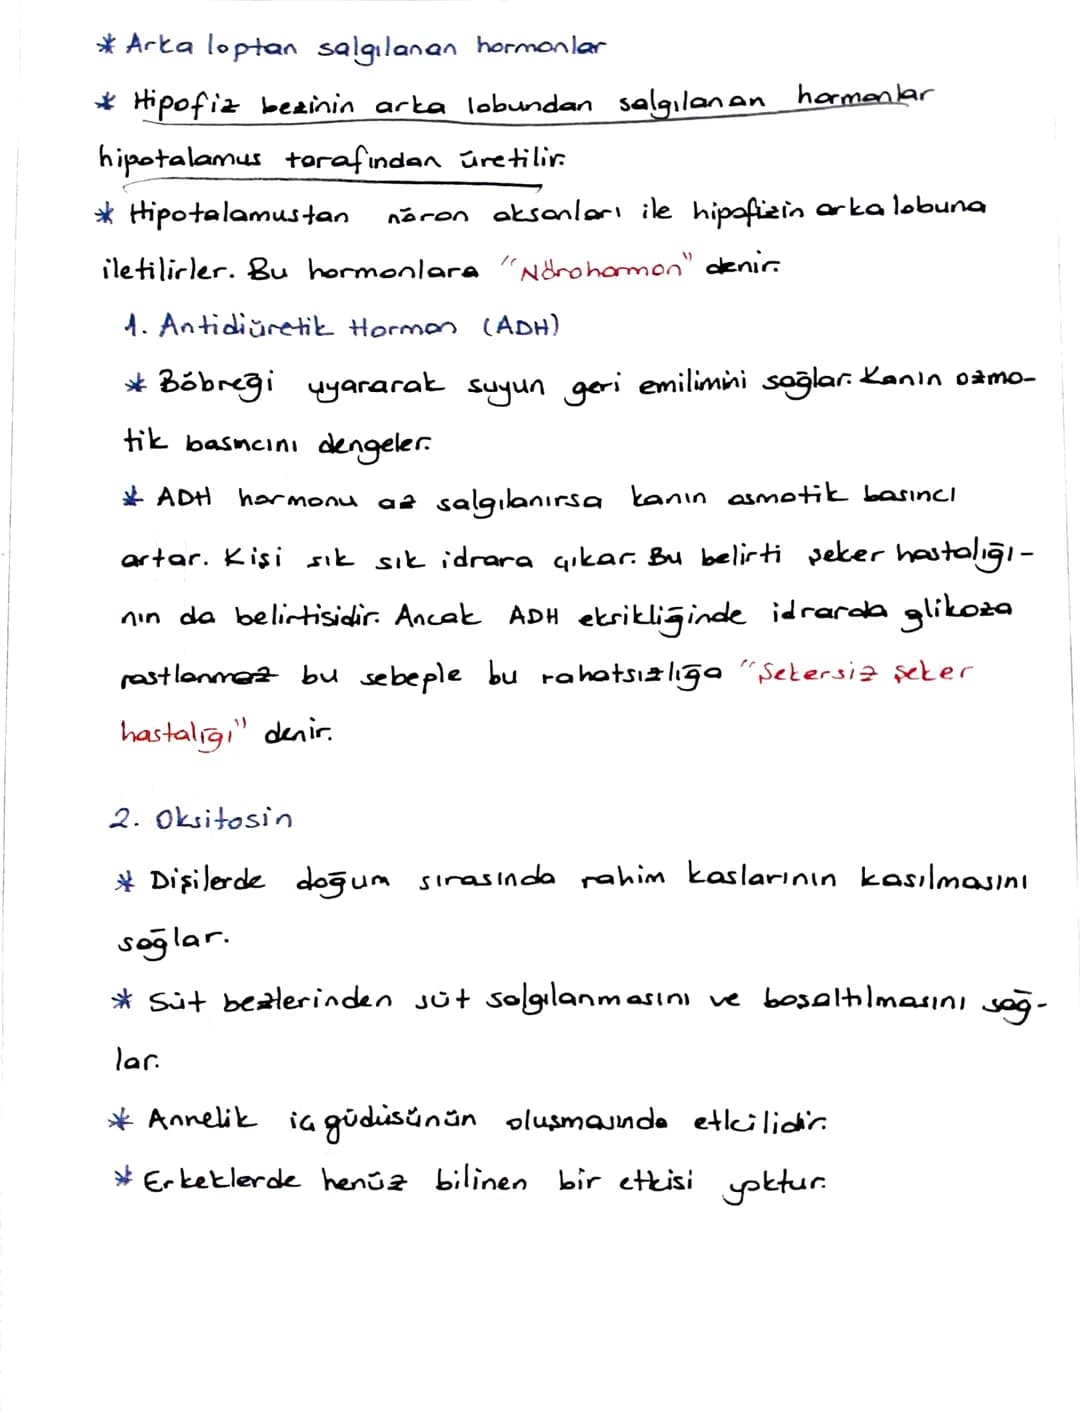 * Arka loptan salgılanan hormonlar
* Hipofiz bezinin arka lobundan salgılanan hormonlar
hipotalamus tarafından üretilir.
* Hipotalamustan nöron aksonları ile hipofizin arka lobuna
iletilirler. Bu hormonlara "Nörohormon" denir.
1. Antidiüretik Hormon (ADH)
* Böbreği uyararak suyun geri emilimini sağlar. Kanın ozmo-
tik basıncını dengeler.
* ADH hormonu az salgılanırsa kanın osmotik basıncı
artar. Kişi sık sık idrara çıkar. Bu belirti şeker hastalığı-
nın da belirtisidir. Ancak ADH eksikliğinde idrarda glikoza
rastlanmaz bu sebeple bu rahatsızlığa "Şekersiz şeker
hastalığı" denir.
2. Oksitosin
* Dişilerde doğum sırasında rahim kaslarının kasılmasını
sağlar.
* Süt bezlerinden süt salgılanmasını ve boşaltılmasını sağ-
lar.
* Annelik iç güdüsünün oluşmasında etkilidir.
* Erkeklerde henüz bilinen bir etkisi yoktur.